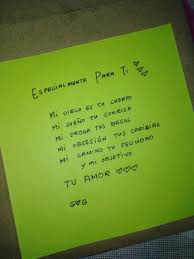 Especialmente Para Ti ♡♡♡
Mi cielo es tu cuerpo
Mi sueño tu sonrisa
Mi droga tus besos
Mi obsesión tus caricias
Mi camino tu felicidad
y mi objetivo
Tu amor ♡♡♡
G♡G